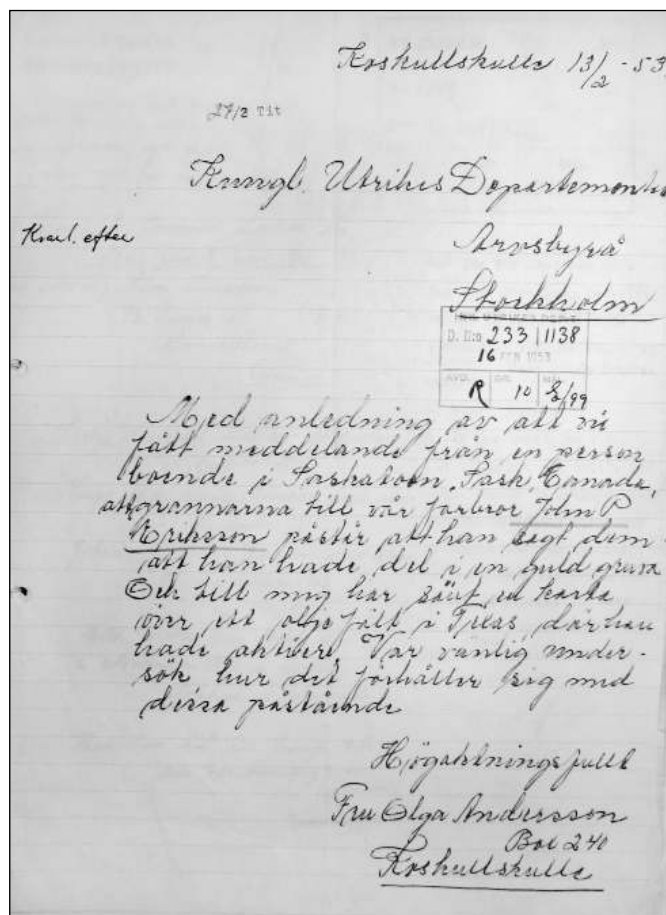 Koskullskulle 13/2 - 53
27/2 Tit
Kungl. Utrikes Departementet
Kvarl. efter
Arvsbyrå
Stockholm
D. N:o 233 | 1138
16 FEB 1953
AVD. GR. MÅL
R 10 E/99
Med anledning av att vi
fått meddelande från en person
boende i Saskatoon, Sask, Canada,
att grannarna till vår farbror John P
Eriksson påstår att han sagt dem
att han hade del i en guld gruva
Och till mig har sänt en karta
över ett oljefält i Texas där han
hade aktier, Var vänlig under-
sök hur det förhåller sig med
dessa påstående
Högaktningsfullt
Fru Olga Andersson
Box 240
Koskullskulle